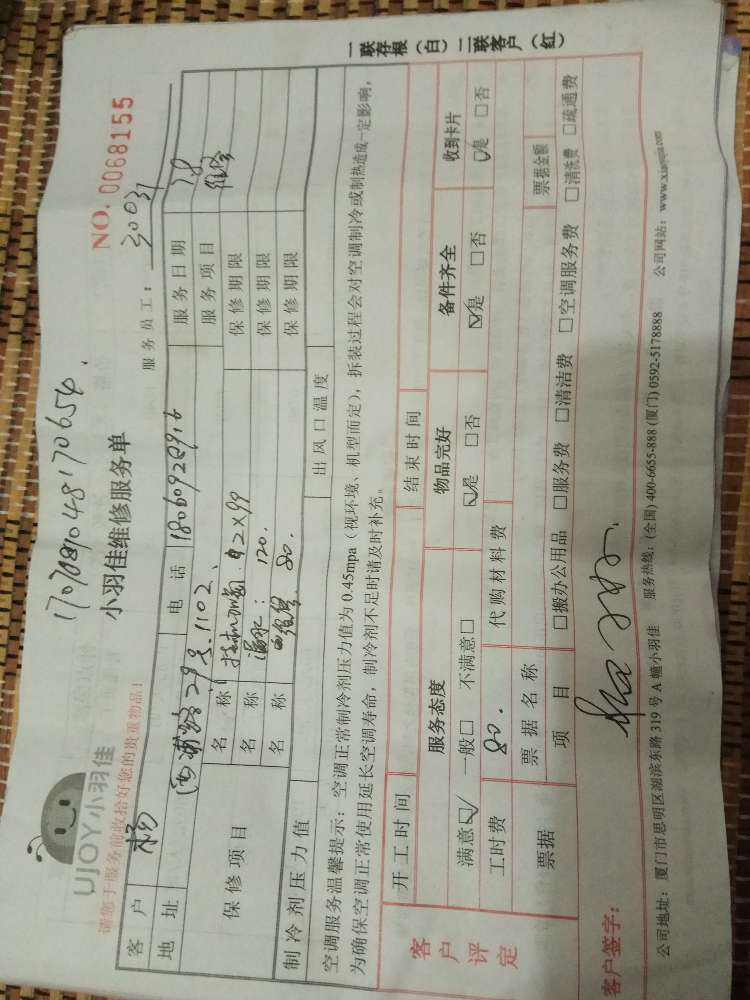 170708104817065
UJOY小羽佳
小羽佳维修服务单
NO. 0068155
请您于服务前收拾好您的贵重物品!
服务员工: 30031
客户 杨 电话 18060928916 服务日期
地址 29号.1102. 服务项目 维修
保修项目 名称 2X99 保修期限
名称 漏水: 120. 保修期限
名称 80. 保修期限
制冷剂压力值 出风口温度
空调服务温馨提示: 空调正常制冷剂压力值为 0.45mpa (视环境、机型而定), 拆装过程会对空调制冷或制热造成一定影响,
为确保空调正常使用延长空调寿命, 制冷剂不足时请及时补充。
开工时间 结束时间
客户评定
服务态度 物品完好 备件齐全 收到卡片
满意☑ 一般□ 不满意□ ☑是 □否 ☑是 □否 ☑是 □否
工时费 80. 代购材料费
票据 票据名称 票据金额
项目 □搬办公用品 □服务费 □清洁费 □空调服务费 □清洗费 □疏通费
客户签字:
公司地址: 厦门市思明区湖滨东路 319 号 A 幢小羽佳 服务热线: (全国) 400-6655-888 (厦门) 0592-5178888 公司网站: www.xiaoyujia.com
一联存根(白) 二联客户(红)